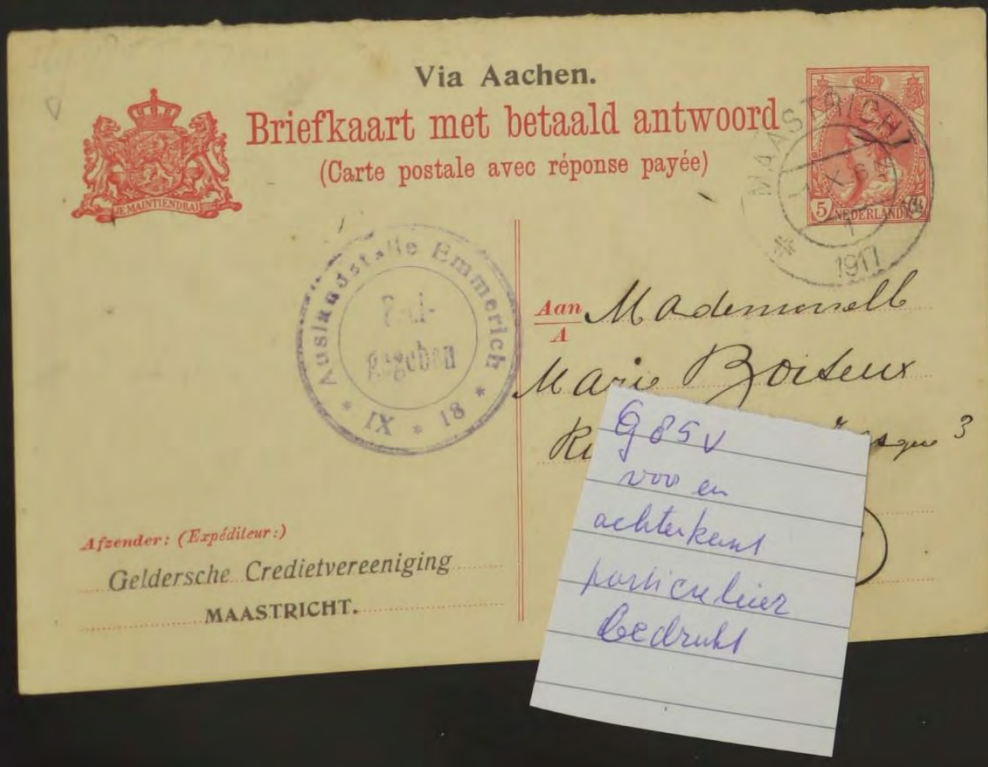 Via Aachen.
Briefkaart met betaald antwoord
(Carte postale avec réponse payée)
JE MAINTIENDRAI
MAASTRICHT
1
1917
5 NEDERLAND
Auslandstelle Emmerich
Frei-
gegeben
* IX * 18 *
Aan
A
Mademoiselle
Marie Boiteux
3
G85V
voo en
achterkant
particulier
bedrukt
Afzender: (Expéditeur:)
Geldersche Credietvereeniging
MAASTRICHT.